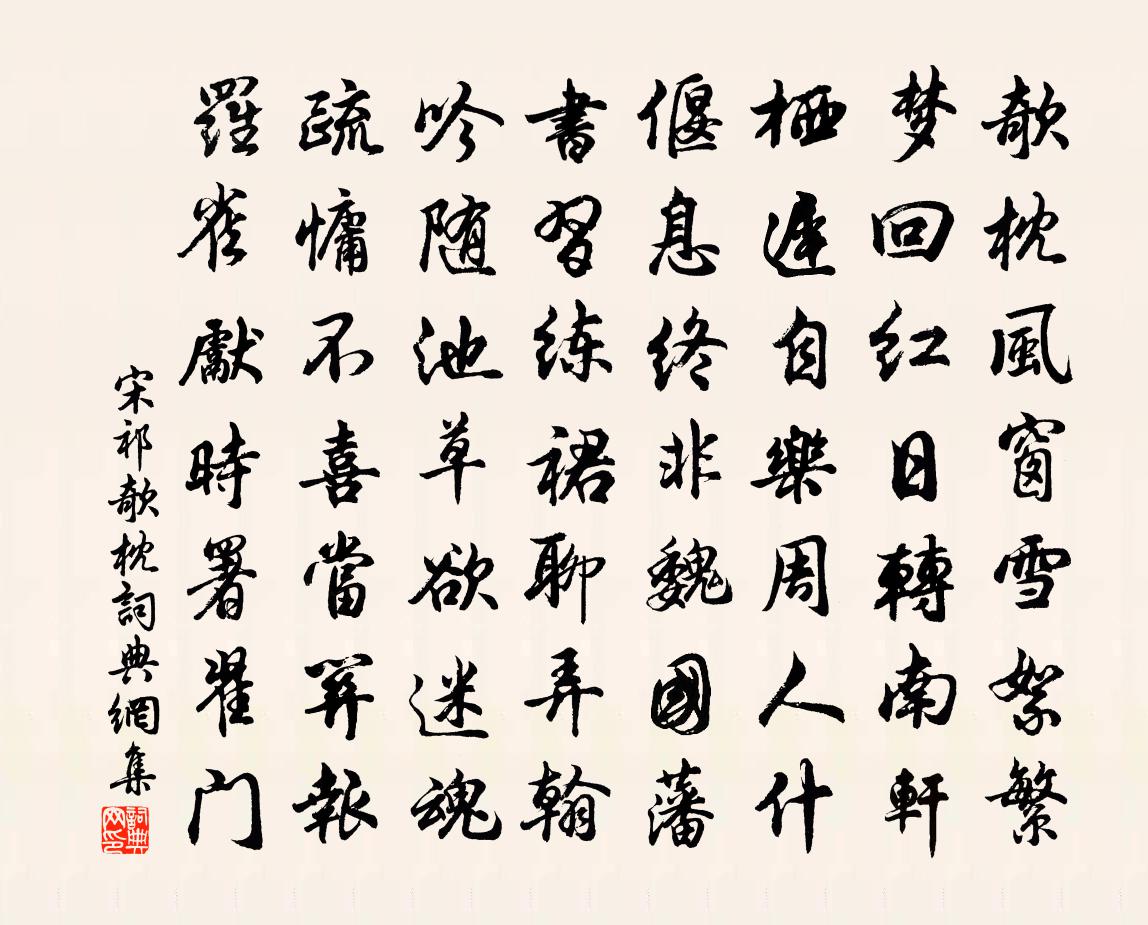 欹枕風窗雪絮繁
梦回红日轉南軒
栖遲自樂周人什
偃息终非魏國藩
書習练裙聊弄翰
吟随池草欲迷魂
疏慵不喜當關報
羅雀獻時署翟门
宋祁欹枕詞典網集
詞典网印